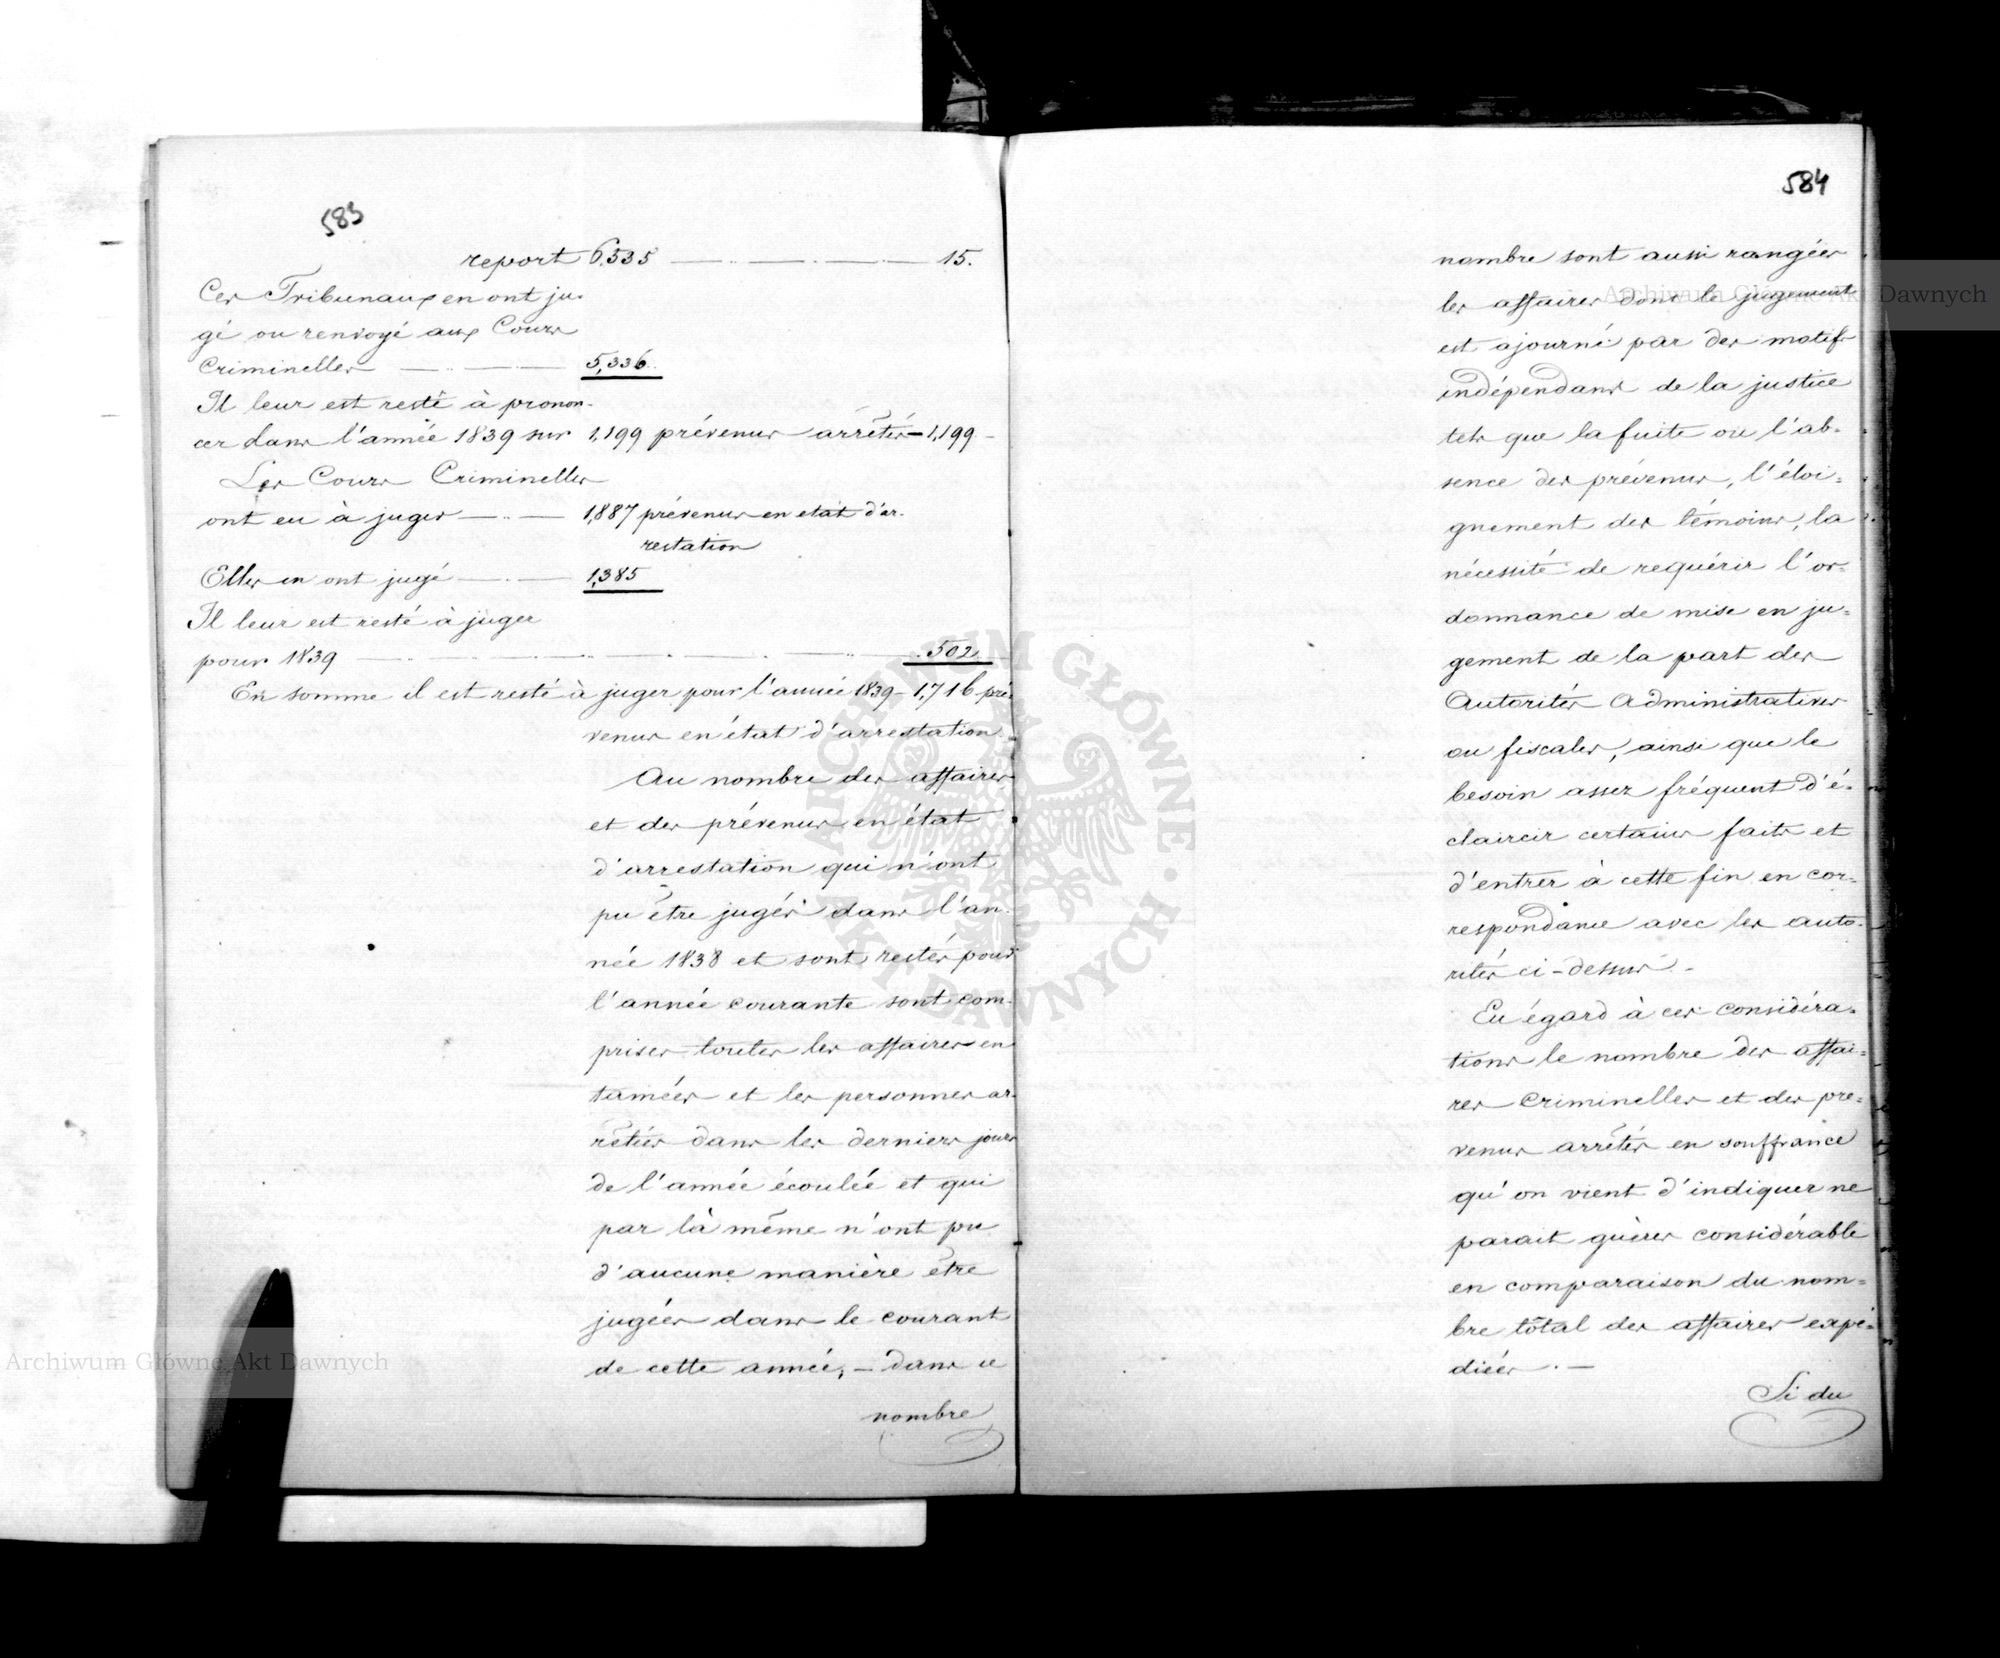 583
report 6,535 — .. — . — .. — 15.
Ces Tribunaux en ont ju-
gé ou renvoyé aux Cours
Criminelles — .. — . — 5,336.
Il leur est resté à pronon-
cer dans l'année 1839 sur 1,199 prévenus arrêtés — 1,199 -
Les Cours Criminelles
ont eu à juger — .. — 1,887 prévenus en etat d'ar-
restation
Elles en ont jugé — . — 1,385
Il leur est resté à juger
pour 1839 — .. — . — .. — . — .. — 502.
En somme il est resté à juger pour l'année 1839 - 1,716 pré-
venus en état d'arrestation.
Au nombre des affaires
et des prévenus en état
d'arrestation qui n'ont
pu être jugés dans l'an-
née 1838 et sont restés pour
l'année courante sont com-
prises toutes les affaires en-
tamées et les personnes ar-
rêtées dans les derniers jours
de l'année écoulée et qui
par là même n'ont pu
d'aucune manière être
jugées dans le courant
de cette année; — dans ce
nombre
584
nombre sont aussi rangées
les affaires dont le jugement
est ajourné par des motifs
indépendans de la justice
tels que la fuite ou l'ab-
sence des prévenus, l'éloi-
gnement des témoins, la
nécessité de requérir l'or-
donnance de mise en ju-
gement de la part des
Autorités Administratives
ou fiscales, ainsi que le
besoin assez fréquent d'é-
claircir certains faits et
d'entrer à cette fin en cor-
respondance avec les auto-
rités ci-dessus. -
Eu égard à ces considéra-
tions le nombre des affai-
res Criminelles et des pre-
venus arrêtés en souffrance
qu'on vient d'indiquer ne
parait guères considérable
en comparaison du nom-
bre total des affaires expé-
diées. —
Si du
ARCHIWUM GŁÓWNE AKT DAWNYCH
Archiwum Główne Akt Dawnych
Archiwum Główne Akt Dawnych